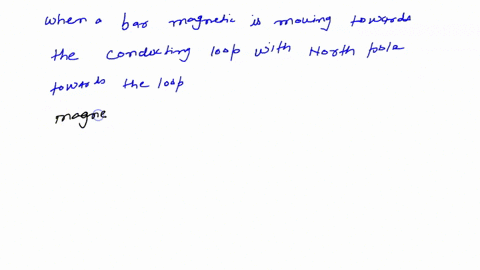 when a bar magnetic is moving towards
the conducting loop with North pole
towards the loop
magne